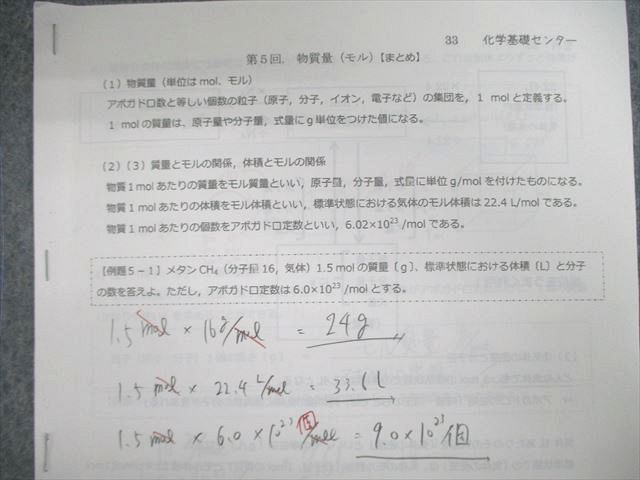 33 化学基礎センター
第5回. 物質量(モル)【まとめ】
(1)物質量(単位は mol、モル)
アボガドロ数と等しい個数の粒子(原子,分子,イオン,電子など)の集団を,1 molと定義する。
1 molの質量は、原子量や分子量,式量にg単位をつけた値になる。
(2)(3)質量とモルの関係,体積とモルの関係
物質1molあたりの質量をモル質量といい,原子量,分子量,式量に単位 g/mol を付けたものになる。
物質1molあたりの体積をモル体積といい,標準状態における気体のモル体積は 22.4 L/mol である。
物質1molあたりの個数をアボガドロ定数といい,6.02×10²³ /mol である。
【例題5-1】メタン CH₄(分子量16,気体)1.5 mol の質量〔g〕、標準状態における体積〔L〕と分子
の数を答えよ。ただし,アボガドロ定数は 6.0×10²³ /mol とする。
1.5 mol × 16 g/mol = 24g
1.5 mol × 22.4 L/mol = 33.6 L
1.5 mol × 6.0 × 10²³ 個/mol = 9.0×10²³個